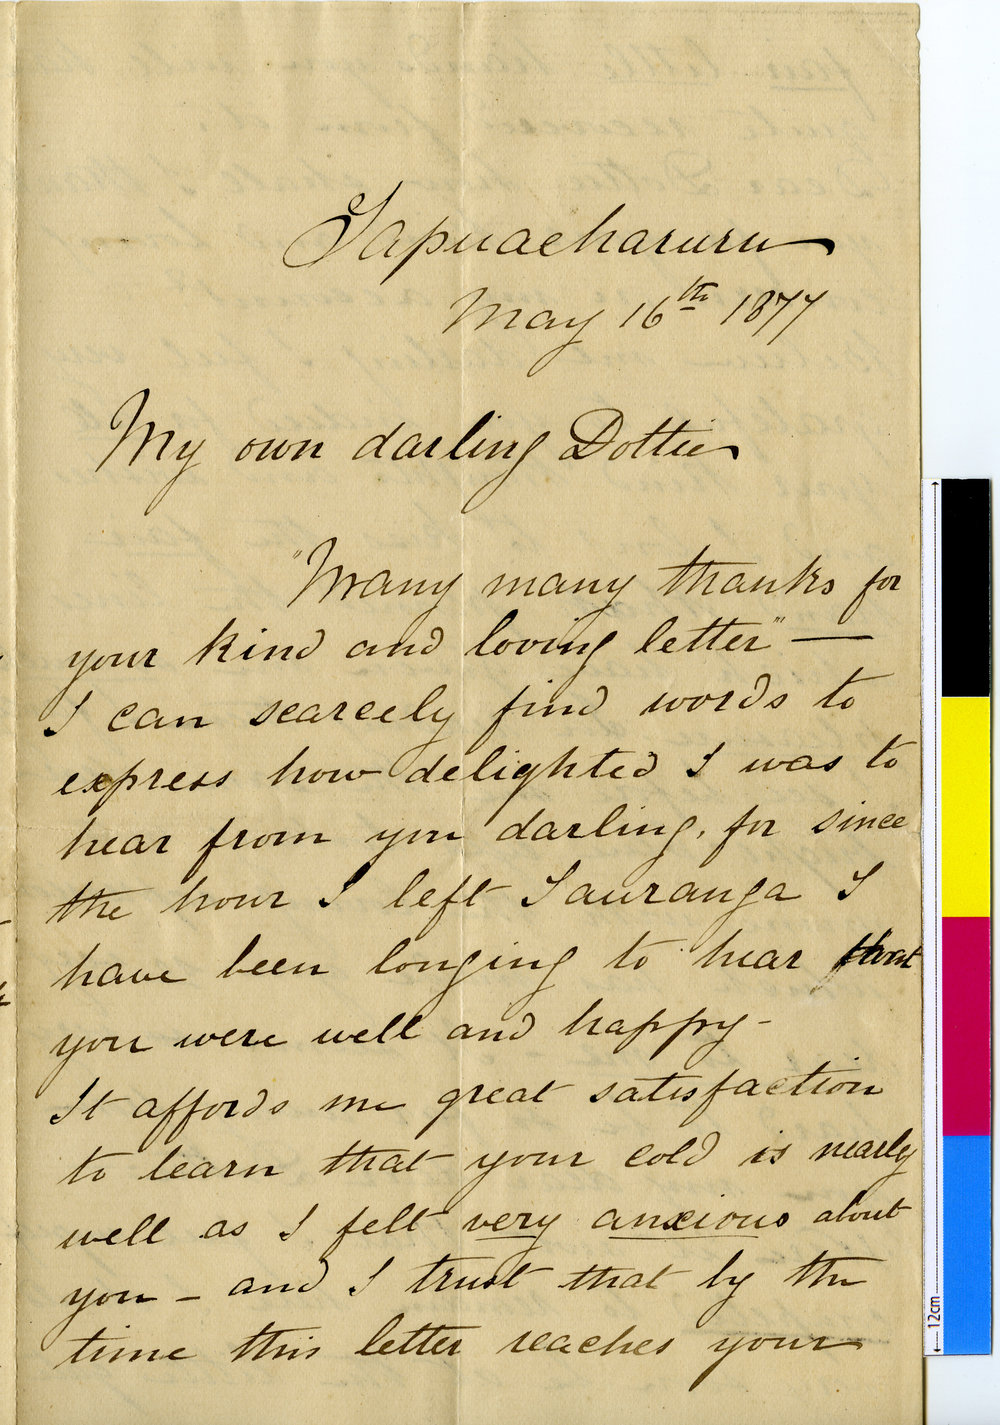 Tapuaeharuru
May 16th 1877
My own darling Dottie
"Many many thanks for
your kind and loving letter" —
I can scarcely find words to
express how delighted I was to
hear from you darling, for since
the hour I left Tauranga I
have been longing to hear that
you were well and happy -
It affords me great satisfaction
to learn that your cold is nearly
well as I felt very anxious about
you - and I trust that by the
time this letter reaches your
12cm